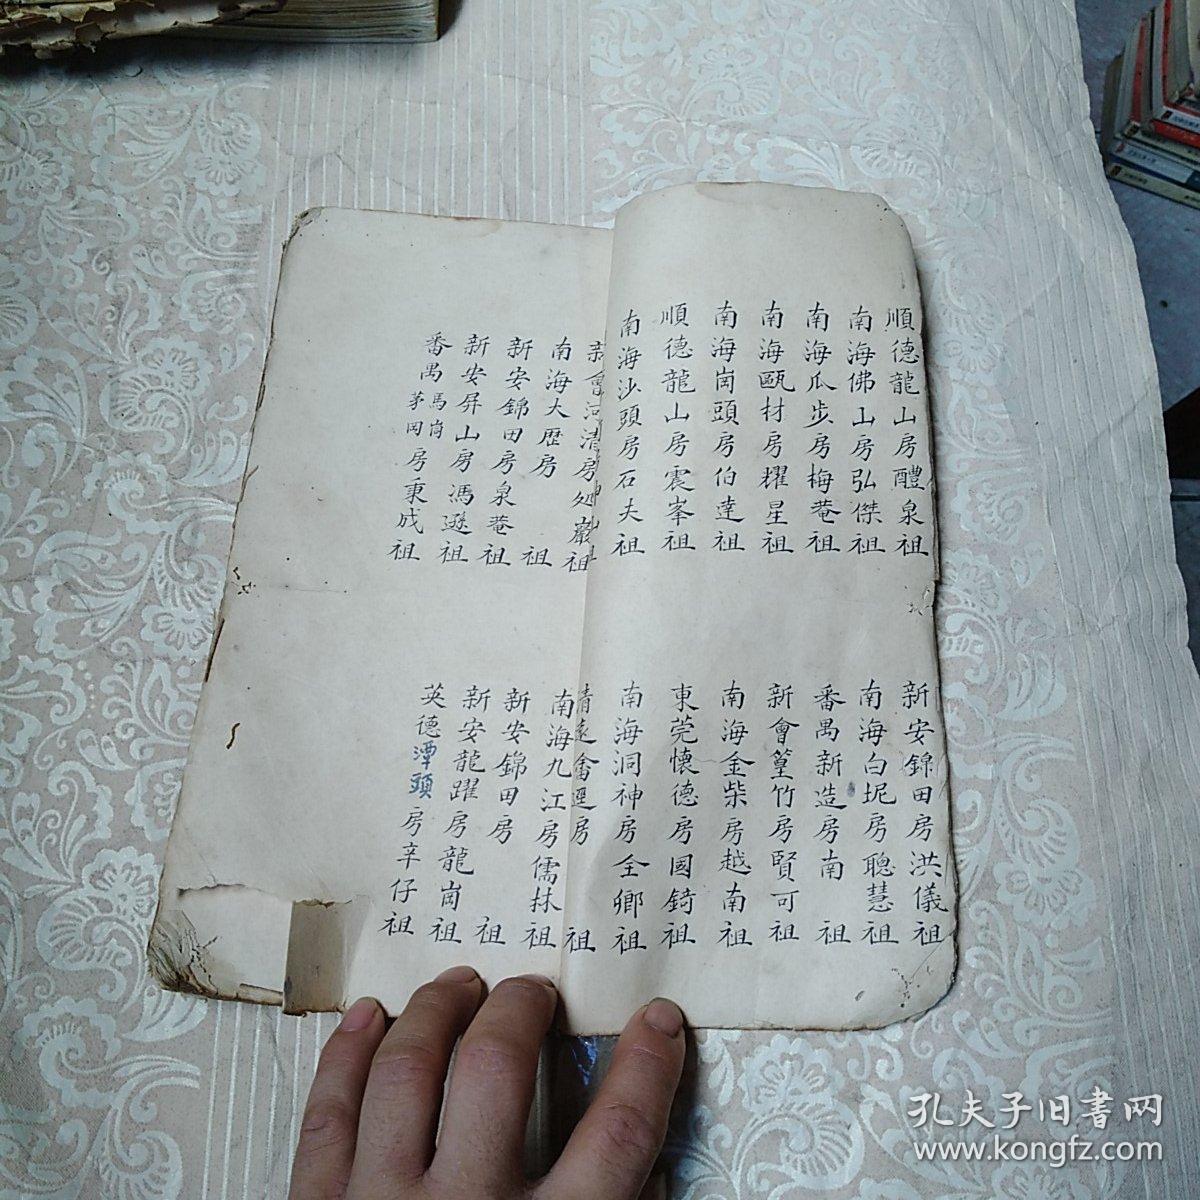 順德龍山房醴泉祖
南海佛山房弘傑祖
南海瓜步房梅菴祖
南海甌材房耀星祖
南海崗頭房伯達祖
順德龍山房震峯祖
南海沙頭房石夫祖
新會河清房処巖祖
南海大歷房祖
新安錦田房泉菴祖
新安屏山房馮遜祖
番禺馬崗茅岡房秉成祖
新安錦田房洪儀祖
南海白坭房聰慧祖
番禺新造房南祖
新會篁竹房賢可祖
南海金柴房越南祖
東莞懷德房國錡祖
南海洞神房全鄉祖
清遠房祖
南海九江房儒林祖
新安錦田房祖
新安龍躍房龍崗祖
英德潭頭房辛仔祖
孔夫子旧書网
www.kongfz.com